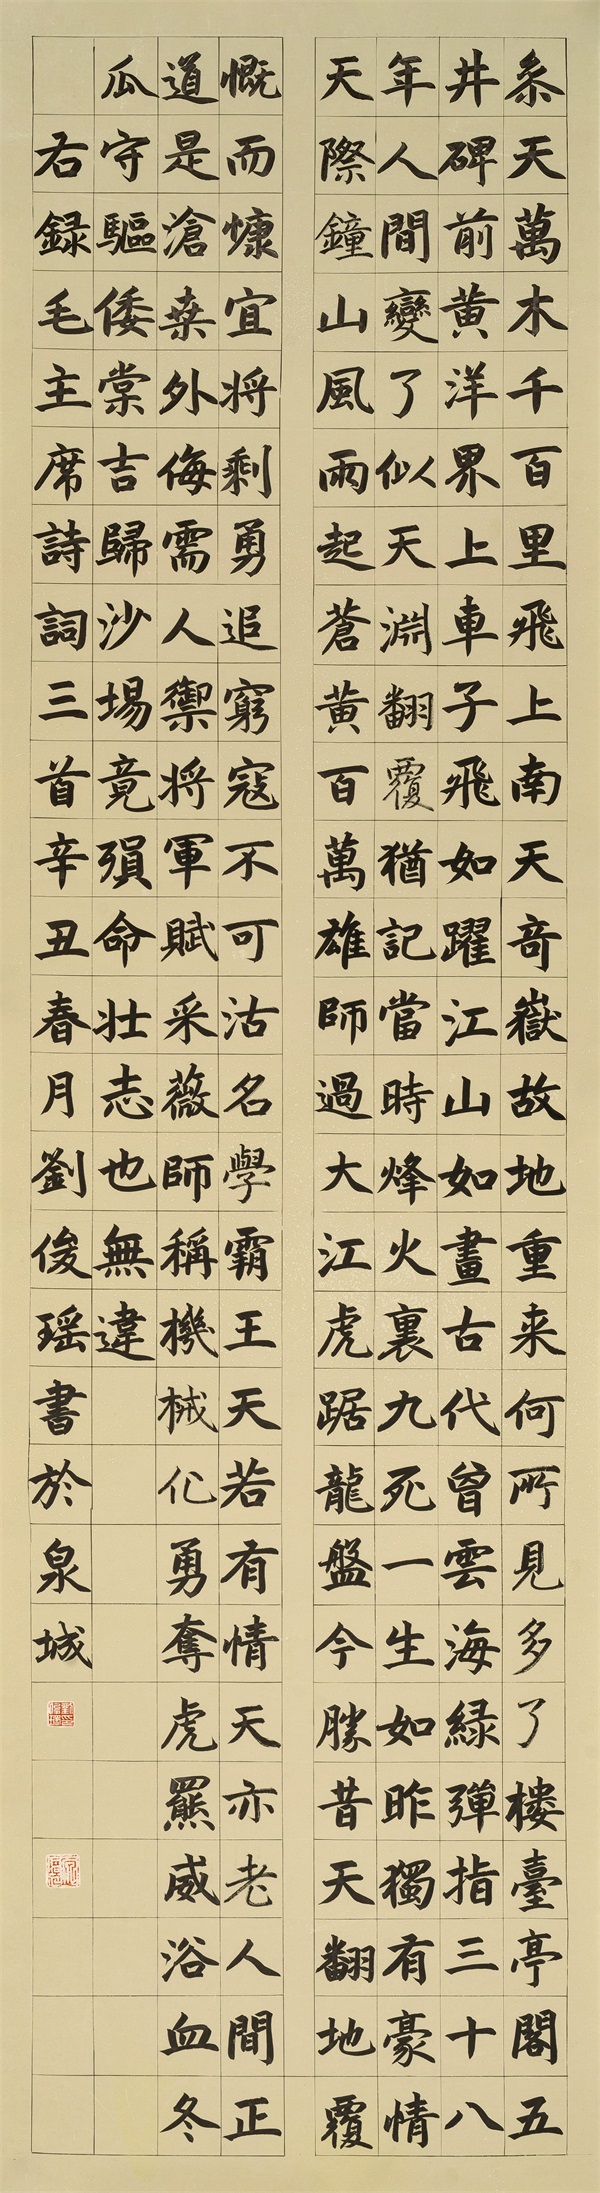 参天萬木千百里飛上南天奇嶽故地重来何所見多了樓臺亭閣五
井碑前黄洋界上車子飛如躍江山如畫古代曾雲海緑彈指三十八
年人間變了似天淵翻覆猶記當時烽火裏九死一生如昨獨有豪情
天際鐘山風雨起蒼黄百萬雄師過大江虎踞龍盤今勝昔天翻地覆
慨而慷宜将剩勇追窮寇不可沽名學霸王天若有情天亦老人間正
道是滄桒外侮需人禦将軍賦采薇師稱機械化勇奪虎羆威浴血冬
瓜守驅倭棠吉歸沙場竟殞命壯志也無違
右録毛主席詩詞三首辛丑春月劉俊瑶書於泉城